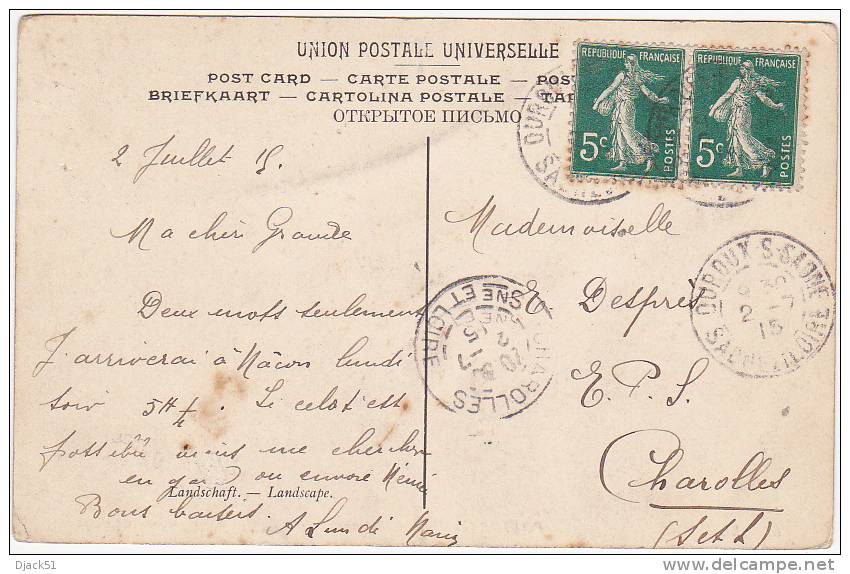 UNION POSTALE UNIVERSELLE
POST CARD — CARTE POSTALE — POS
BRIEFKAART — CARTOLINA POSTALE — TA
ОТКРЫТОЕ ПИСЬМО
REPUBLIQUE FRANÇAISE
5c
POSTES
REPUBLIQUE FRANÇAISE
5c
POSTES
2 Juillet 15.
Ma chèri Grande
Deux mots seulement
J'arriverai à Mâcon lundi
soir 5H ¼. Si cela t'est
possible viens me chercher
en gare ou envoie
Landschaft. — Landscape.
Bons baisers. A Lundi
Mademoiselle
E Desprès
E. P. S.
Charolles
(S et L)
OUROUX S-SAONE
2 -7
15
SAONE-ET-LOIRE
CHAROLLES
SNE ET LOIRE
Djack51
delcampe.net